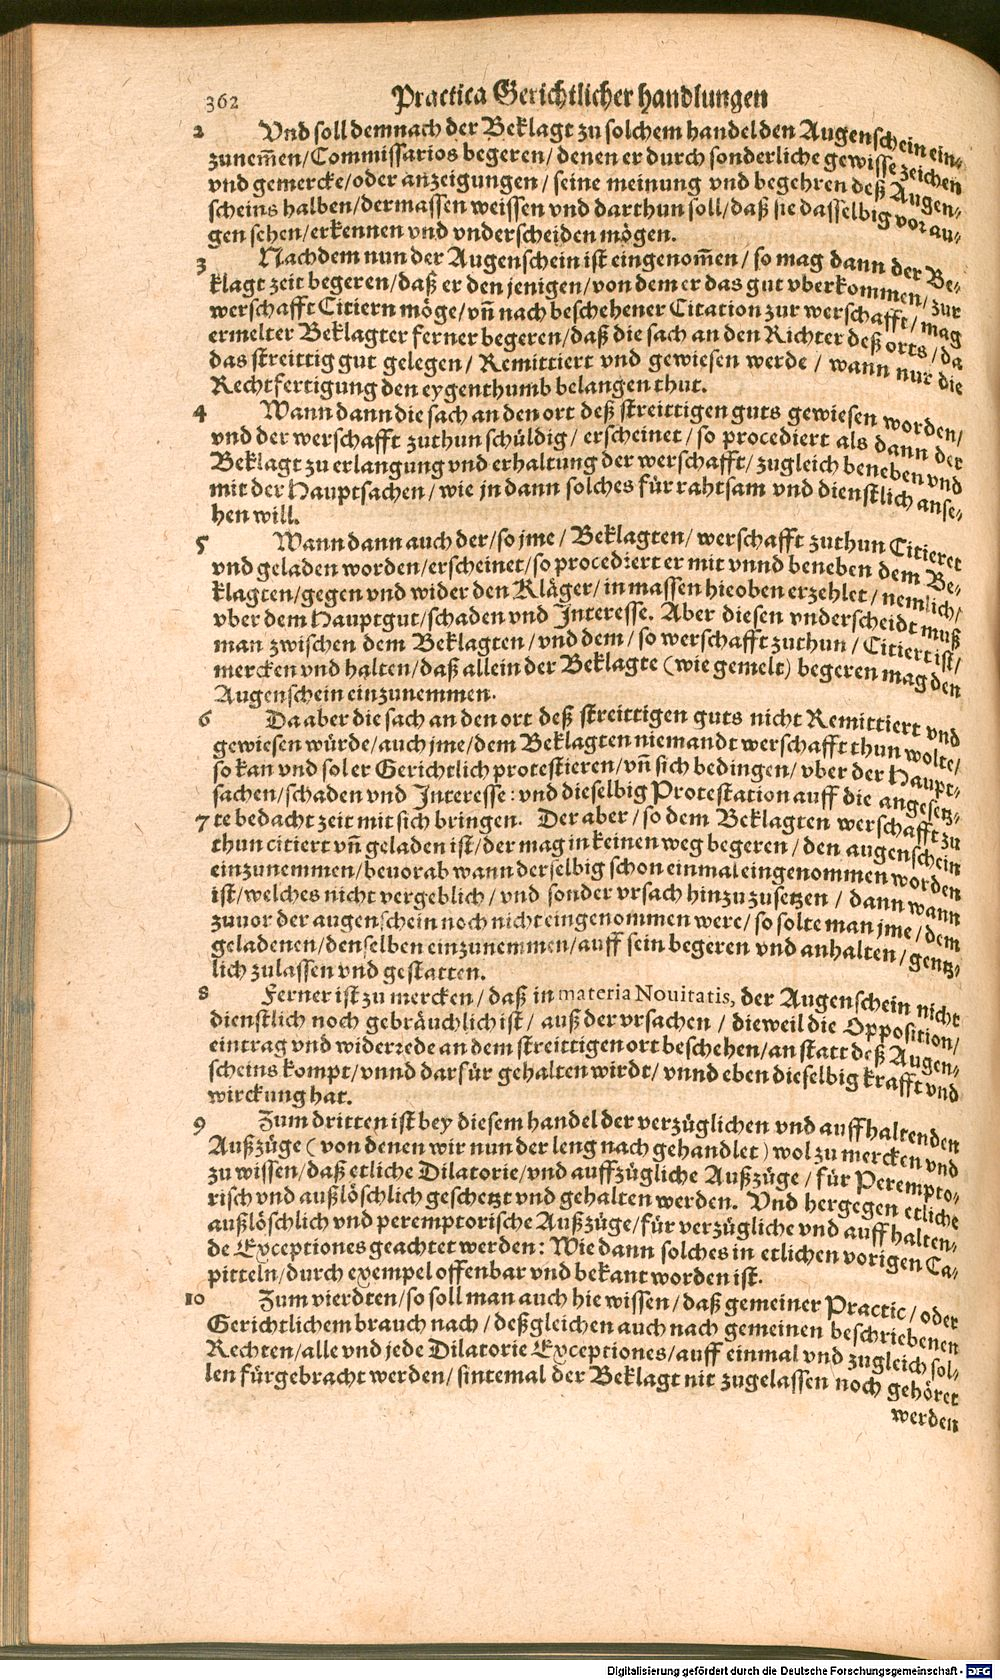 362 Practica Gerichtlicher handlungen
2 Vnd soll demnach der Beklagt zu solchem handel den Augenschein ein-
zunem̃en/Commissarios begeren/denen er durch sonderliche gewisse zeichen
vnd gemercke/oder anzeigungen/ seine meinung vnd begehren deß Augen-
scheins halben/dermassen weissen vnd darthun soll/daß sie dasselbig vor au-
gen sehen/erkennen vnd vnderscheiden mögen.
3 Nachdem nun der Augenschein ist eingenom̃en/ so mag dann der Be-
klagt zeit begeren/daß er den jenigen/von dem er das gut vberkommen/ zur
werschafft Citiern möge/vñ nach beschehener Citation zur werschafft/ mag
ermelter Beklagter ferner begeren/daß die sach an den Richter deß orts/ da
das streittig gut gelegen/ Remittiert vnd gewiesen werde/ wann nur die
Rechtfertigung den eygenthumb belangen thut.
4 Wann dann die sach an den ort deß streittigen guts gewiesen worden/
vnd der werschafft zuthun schüldig/ erscheinet/ so procediert als dann der
Beklagt zu erlangung vnd erhaltung der werschafft/ zugleich beneben vnd
mit der Hauptsachen/ wie jn dann solches für rahtsam vnd dienstlich anse-
hen will.
5 Wann dann auch der/so jme/ Beklagten/ werschafft zuthun Citieret
vnd geladen worden/erscheinet/so procediert er mit vnnd beneben dem Be-
klagten/gegen vnd wider den Kläger/in massen hieoben erzehlet/ nemlich/
vber dem Hauptgut/schaden vnd Interesse. Aber diesen vnderscheidt muß
man zwischen dem Beklagten/vnd dem/ so werschafft zuthun/ Citiert ist/
mercken vnd halten/daß allein der Beklagte (wie gemelt) begeren mag den
Augenschein einzunemmen.
6 Da aber die sach an den ort deß streittigen guts nicht Remittiert vnd
gewiesen würde/auch jme/dem Beklagten niemandt werschafft thun wolte/
so kan vnd sol er Gerichtlich protestieren/vñ sich bedingen/ vber der Haupt-
sachen/schaden vnd Interesse: vnd dieselbig Protestation auff die angesetz-
7 te bedacht zeit mit sich bringen. Der aber/ so dem Beklagten werschafft zu
thun citiert vñ geladen ist/der mag in keinen weg begeren/ den augenschein
einzunemmen/beuorab wann derselbig schon einmal eingenommen worden
ist/welches nicht vergeblich/ vnd sonder vrsach hinzu zusetzen/ dann wann
zuuor der augenschein noch nicht eingenommen were/ so solte man jme/ dem
geladenen/denselben einzunemmen/auff sein begeren vnd anhalten/ gentz-
lich zulassen vnd gestatten.
8 Ferner ist zu mercken/ daß in materia Nouitatis, der Augenschein nicht
dienstlich noch gebräuchlich ist/ auß der vrsachen/ dieweil die Opposition/
eintrag vnd widerrede an dem streittigen ort beschehen/an statt deß Augen-
scheins kompt/vnnd darfür gehalten wirdt/ vnnd eben dieselbig krafft vnd
wirckung hat.
9 Zum dritten ist bey diesem handel der verzüglichen vnd auffhaltenden
Außzüge (von denen wir nun der leng nach gehandlet) wol zu mercken vnd
zu wissen/daß etliche Dilatorie/vnd auffzügliche Außzüge/ für Perempto-
risch vnd außlöschlich geschetzt vnd gehalten werden. Vnd hergegen etliche
außlöschlich vnd peremptorische Außzüge/für verzügliche vnd auffhalten-
de Exceptiones geachtet werden: Wie dann solches in etlichen vorigen Ca-
pitteln/durch exempel offenbar vnd bekant worden ist.
10 Zum vierdten/so soll man auch hie wissen/ daß gemeiner Practic/ oder
Gerichtlichem brauch nach/ deßgleichen auch nach gemeinen beschriebenen
Rechten/alle vnd jede Dilatorie Exceptiones/auff einmal vnd zugleich sol-
len fürgebracht werden/ sintemal der Beklagt nit zugelassen noch gehöret
werden
Digitalisierung gefördert durch die Deutsche Forschungsgemeinschaft - DFG